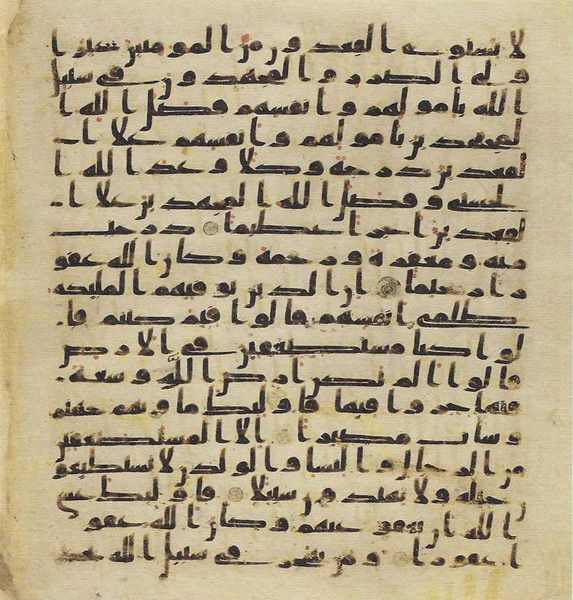 لا يستوى القعدون من المومنين غير ا
ولى الضرر والمجهدون فى سبيل
الله بامولهم وانفسهم فضل الله ا
لمجهدين بامولهم وانفسهم على ا
لقعدين درجة وكلا وعد الله ا
لحسنى وفضل الله المجهدين على ا
لقعدين اجرا عظيما درجت
منه ومغفرة ورحمة وكان الله غفو
را رحيما ان الذين توفيهم المليكة
ظلمى انفسهم قالوا فيم كنتم قا
لوا كنا مستضعفين فى الارض
قالوا الم تكن ارض الله وسعة
فتهاجروا فيها فاوليك ماويهم جهنم
وسات مصيرا الا المستضعفين
من الرجال والنسا والولدن لا يستطيعو
ن حيلة ولا يهتدون سبيلا فاوليك عسى
الله ان يعفو عنهم وكان الله عفو
ا غفورا ومن يهجر فى سبيل الله يجد